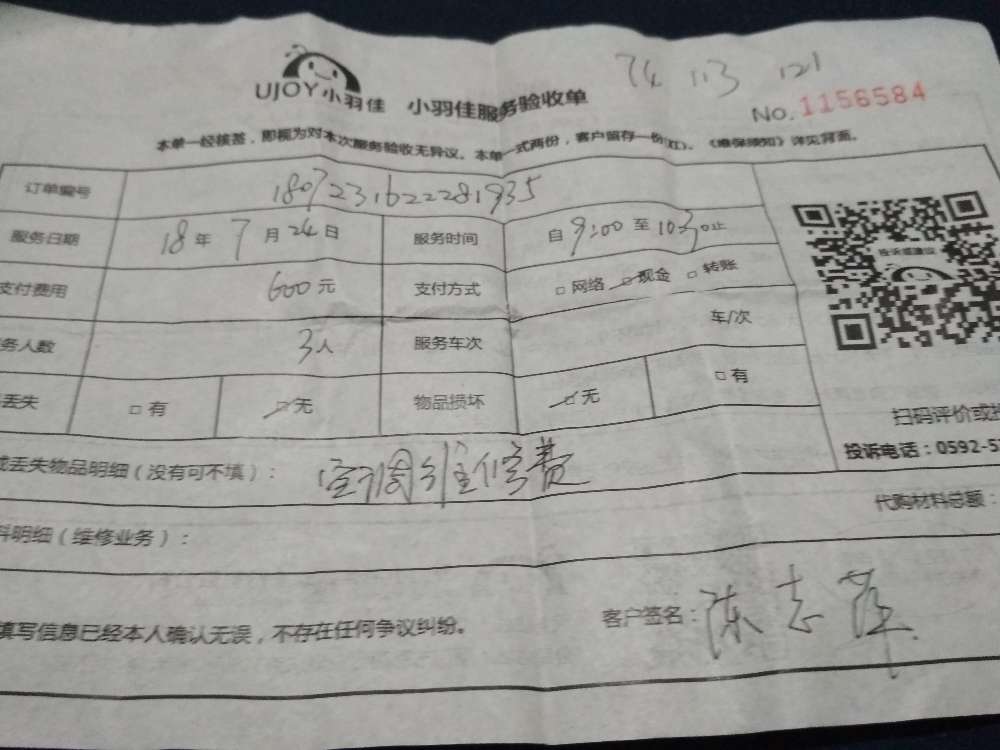 74 113 121
UJOY小羽佳 小羽佳服务验收单
No.1156584
本单一经核签，即视为对本次服务验收无异议。本单一式两份，客户留存一份(红)。《维保须知》详见背面。
订单编号 1807231622281935
服务日期 18年7月24日 服务时间 自9:00至1030止
支付费用 600元 支付方式 □网络 ☑现金 □转账
务人数 3人 服务车次 车/次
丢失 □有 ☑无 物品损坏 ☑无 □有
投诉或建议
扫码评价或投
投诉电话：0592-5
或丢失物品明细（没有可不填）： 空调维修费
代购材料总额：
料明细（维修业务）：
填写信息已经本人确认无误，不存在任何争议纠纷。 客户签名：陈志萍